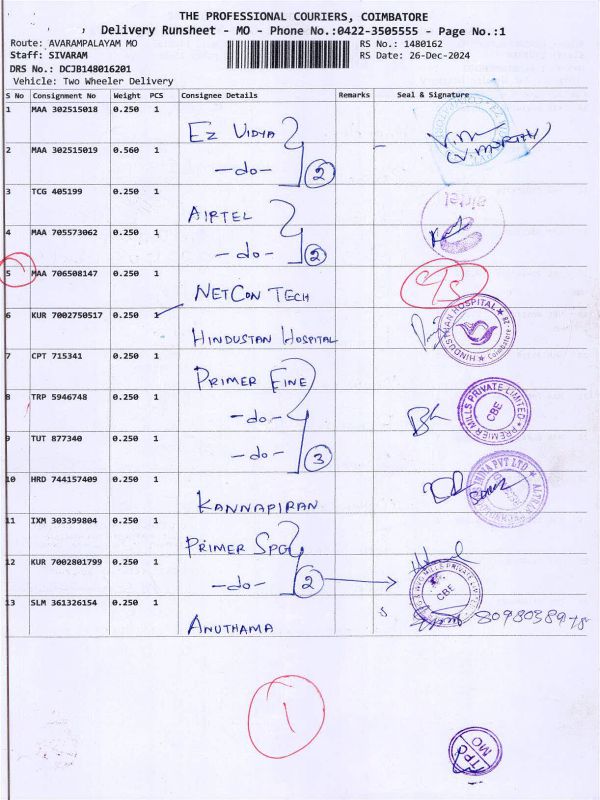 THE PROFESSIONAL COURIERS, COIMBATORE
Delivery Runsheet - MO - Phone No.:0422-3505555 - Page No.:1
Route: AVARAMPALAYAM MO RS No.: 1480162
Staff: SIVARAM RS Date: 26-Dec-2024
DRS No.: DCJB148016201
Vehicle: Two Wheeler Delivery
S No Consignment No Weight PCS Consignee Details Remarks Seal & Signature
1 MAA 302515018 0.250 1 EZ VIDYA (V. MURTHY)
2 MAA 302515019 0.560 1 -do- 2
3 TCG 405199 0.250 1 AIRTEL airtel
4 MAA 705573062 0.250 1 -do- 2
5 MAA 706508147 0.250 1 NETCON TECH
6 KUR 7002750517 0.250 1 HINDUSTAN HOSPITAL HINDUSTHAN HOSPITAL Coimbatore
7 CPT 715341 0.250 1 PRIMER FINE
8 TRP 5946748 0.250 1 -do- PREMIER MILLS PRIVATE LIMITED CBE
9 TUT 877340 0.250 1 -do- 3
10 HRD 744157409 0.250 1 KANNAPIRAN INDIA PVT LTD
11 IXM 303399804 0.250 1 PRIMER SPG
12 KUR 7002801799 0.250 1 -do- 2 MILLS PRIVATE LIMITED CBE
13 SLM 361326154 0.250 1 ANUTHAMA
1
TPC
MO